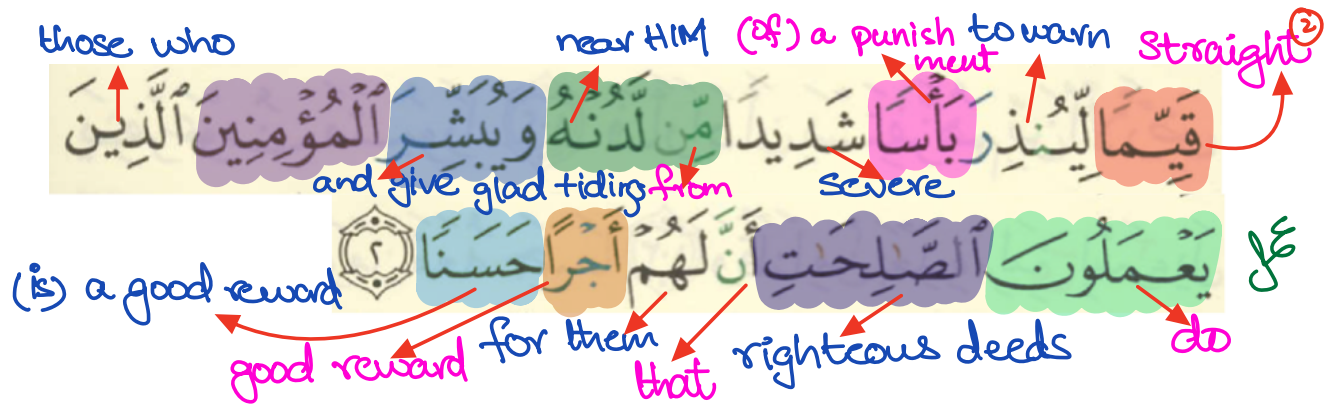 those who near HIM (of) a punish ment to warn Straight ②
قَيِّمًا لِّيُنذِرَ بَأْسًا شَدِيدًا مِّن لَّدُنْهُ وَيُبَشِّرَ ٱلْمُؤْمِنِينَ ٱلَّذِينَ
and give glad tiding from severe
يَعْمَلُونَ ٱلصَّـٰلِحَـٰتِ أَنَّ لَهُمْ أَجْرًا حَسَنًا ٢
عمل
(is) a good reward
good reward for them that righteous deeds do